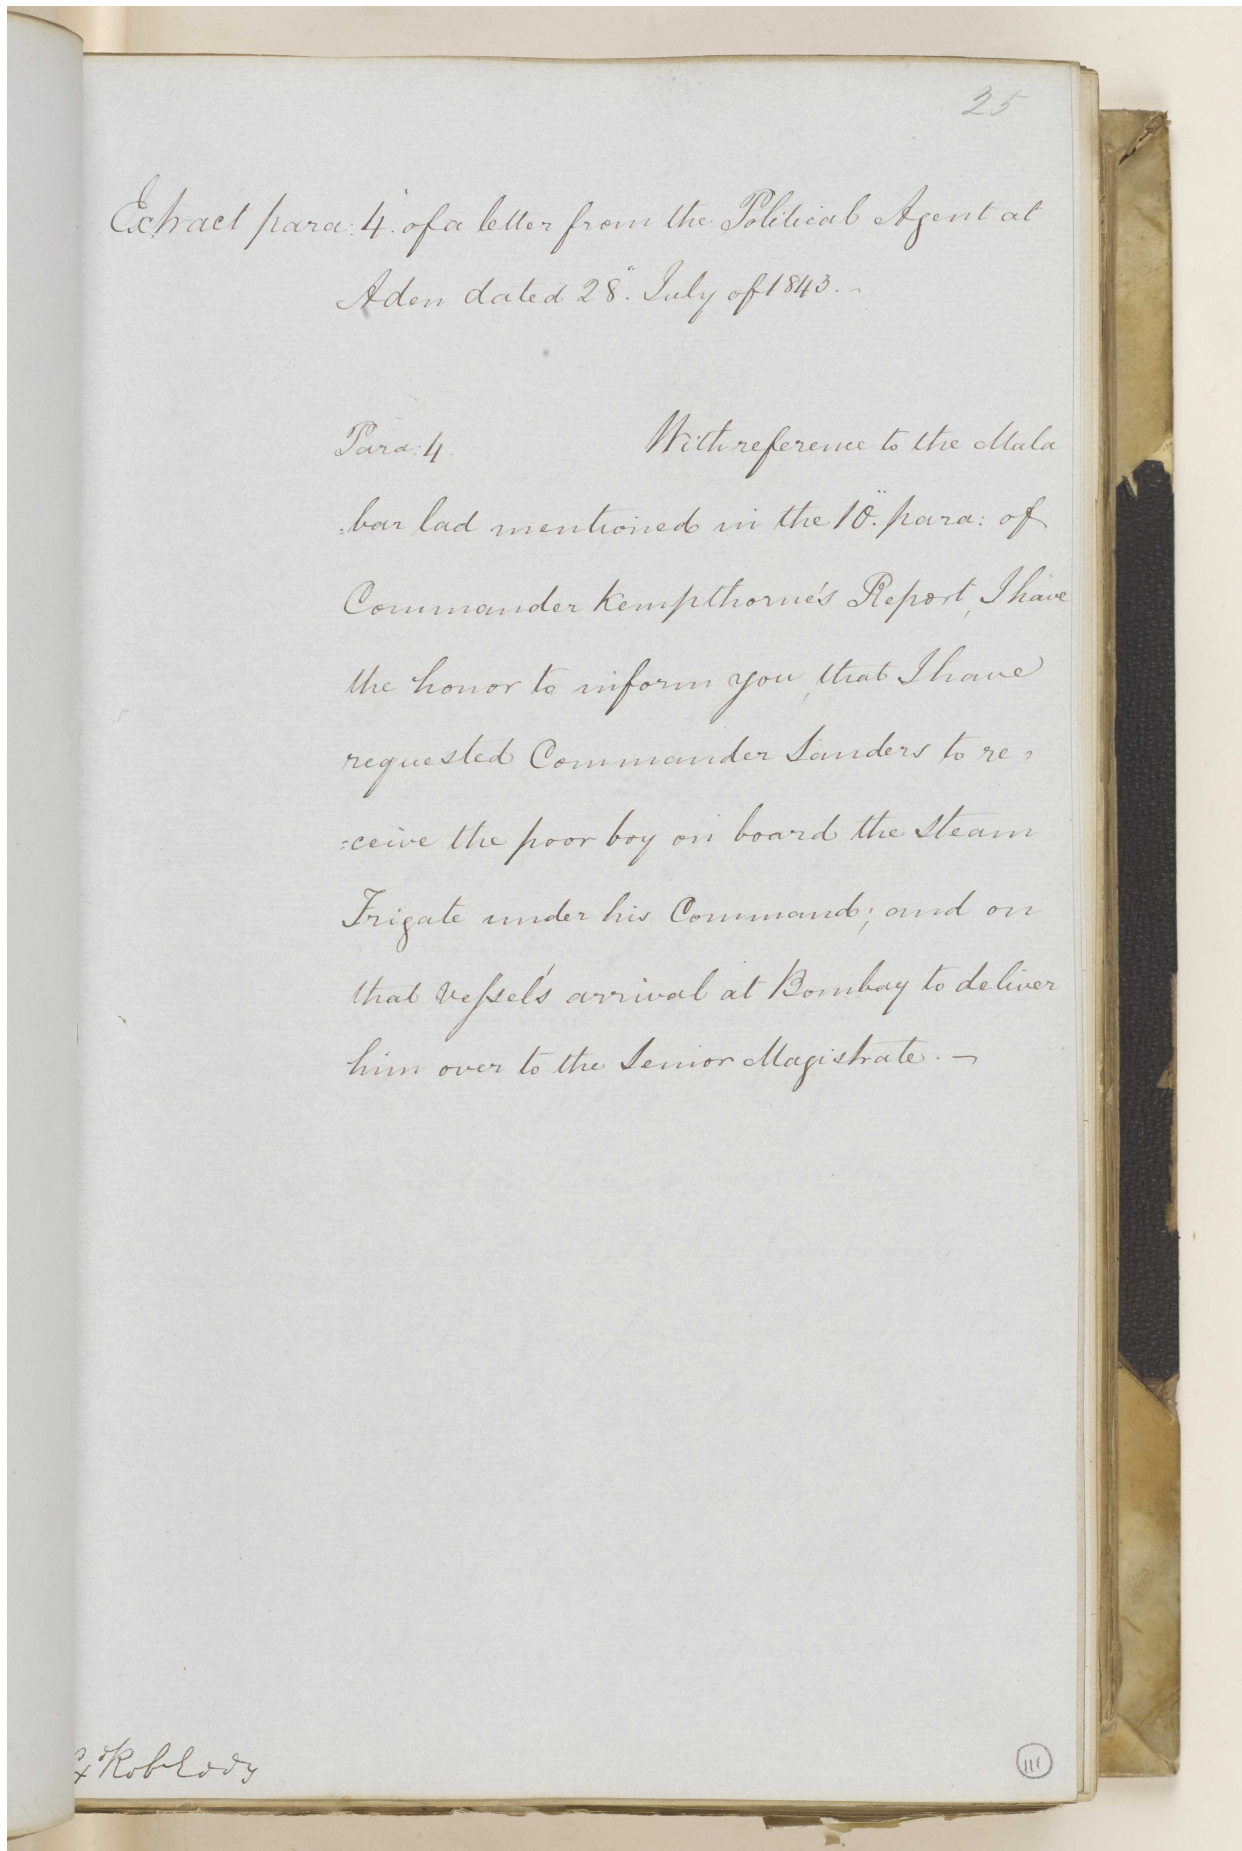 25
Extract para: 4. of a letter from the Political Agent at
Aden dated 28". July of 1843. -
Para: 4. With reference to the Mala
=bar lad mentioned in the 10". para: of
Commander Kempthorne's Report, I have
the honor to inform you, that I have
requested Commander Sanders to re=
=ceive the poor boy on board the Steam
Frigate under his Command; and on
that Vessel's arrival at Bombay to deliver
him over to the Senior Magistrate. -
111